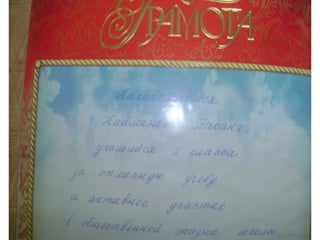 ГРАМОТА
Награждается
Басанг,
учащийся 2 класса
за отличную учебу
и активное участие
в общественной жизни школы